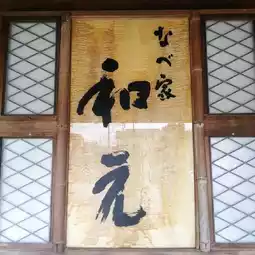 なべ家
和元